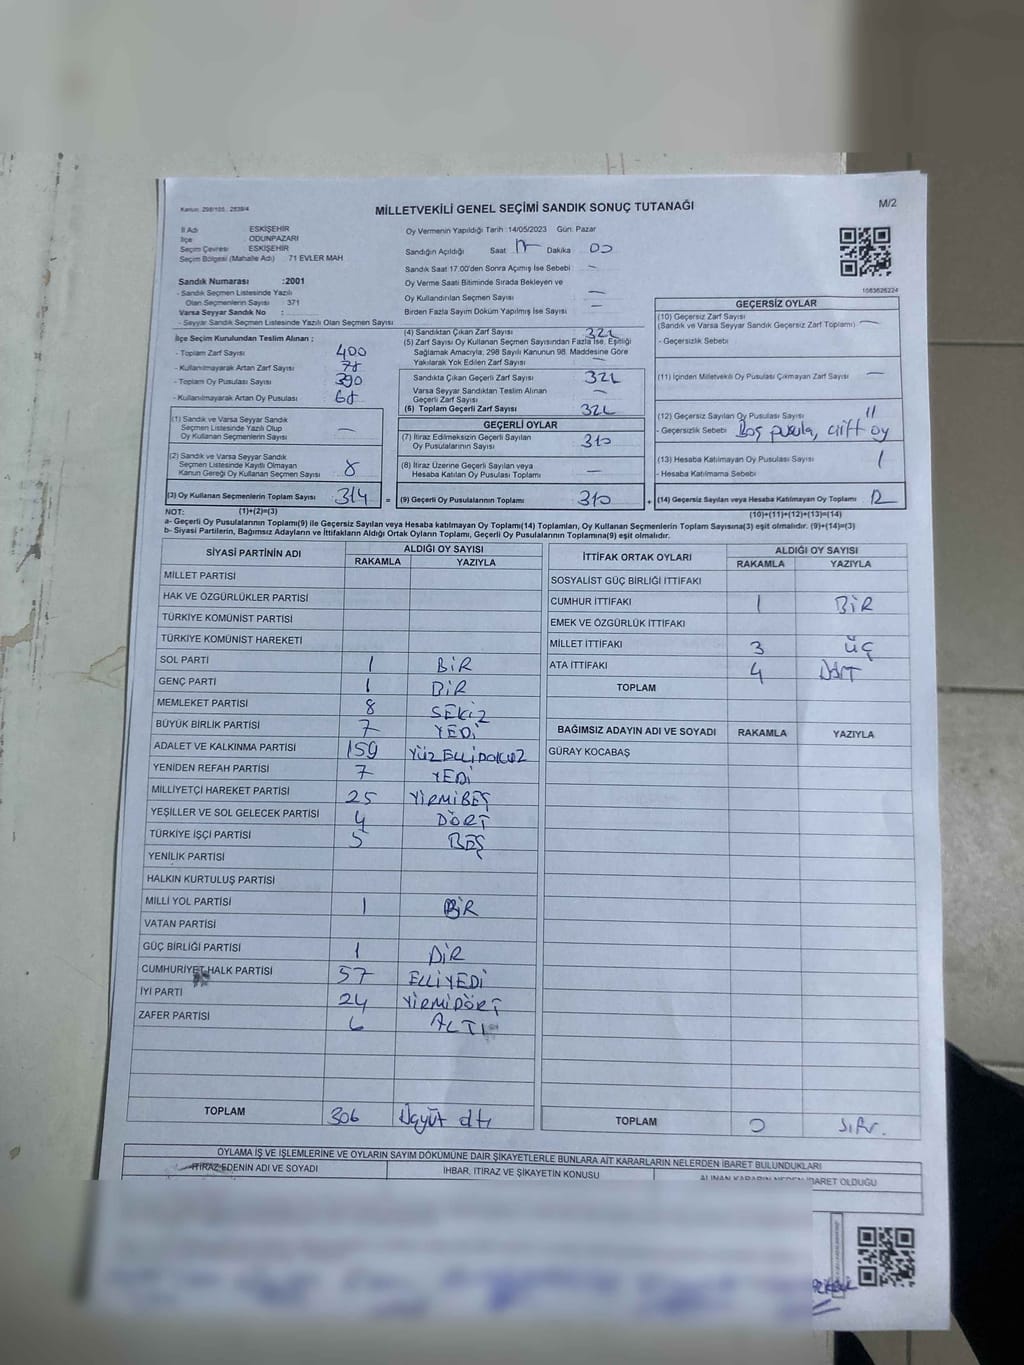 Kanun: 298/105 , 2839/4
MİLLETVEKİLİ GENEL SEÇİMİ SANDIK SONUÇ TUTANAĞI
M/2
İl Adı ESKİŞEHİR
İlçe ODUNPAZARI
Seçim Çevresi ESKİŞEHİR
Seçim Bölgesi (Mahalle Adı) 71 EVLER MAH
Sandık Numarası :2001
- Sandık Seçmen Listesinde Yazılı
Olan Seçmenlerin Sayısı : 371
Varsa Seyyar Sandık No :
- Seyyar Sandık Seçmen Listesinde Yazılı Olan Seçmen Sayısı
Oy Vermenin Yapıldığı Tarih :14/05/2023 Gün: Pazar
Sandığın Açıldığı Saat 17 Dakika 00
Sandık Saat 17.00'den Sonra Açımış İse Sebebi —
Oy Verme Saati Bitiminde Sırada Bekleyen ve
Oy Kullandırılan Seçmen Sayısı —
Birden Fazla Sayım Döküm Yapılmış İse Sayısı —
1083626224
İlçe Seçim Kurulundan Teslim Alınan ;
- Toplam Zarf Sayısı 400
- Kullanılmayarak Artan Zarf Sayısı 78
- Toplam Oy Pusulası Sayısı 390
- Kullanılmayarak Artan Oy Pusulası 68
(1) Sandık ve Varsa Seyyar Sandık
Seçmen Listesinde Yazılı Olup
Oy Kullanan Seçmenlerin Sayısı —
(2) Sandık ve Varsa Seyyar Sandık
Seçmen Listesinde Kayıtlı Olmayan
Kanun Gereği Oy Kullanan Seçmen Sayısı 8
(3) Oy Kullanan Seçmenlerin Toplam Sayısı 314
(4) Sandıktan Çıkan Zarf Sayısı 322
(5) Zarf Sayısı Oy Kullanan Seçmen Sayısından Fazla İse, Eşitliği
Sağlamak Amacıyla; 298 Sayılı Kanunun 98. Maddesine Göre
Yakılarak Yok Edilen Zarf Sayısı —
Sandıkta Çıkan Geçerli Zarf Sayısı 322
Varsa Seyyar Sandıktan Teslim Alınan
Geçerli Zarf Sayısı —
(6) Toplam Geçerli Zarf Sayısı 322
GEÇERLİ OYLAR
(7) İtiraz Edilmeksizin Geçerli Sayılan
Oy Pusulalarının Sayısı 310
(8) İtiraz Üzerine Geçerli Sayılan veya
Hesaba Katılan Oy Pusulası Toplamı —
= (9) Geçerli Oy Pusulalarının Toplamı 310
GEÇERSİZ OYLAR
(10) Geçersiz Zarf Sayısı
(Sandık ve Varsa Seyyar Sandık Geçersiz Zarf Toplamı) —
- Geçersizlik Sebebi
(11) İçinden Milletvekili Oy Pusulası Çıkmayan Zarf Sayısı —
(12) Geçersiz Sayılan Oy Pusulası Sayısı 11
- Geçersizlik Sebebi Boş pusula, çift oy
(13) Hesaba Katılmayan Oy Pusulası Sayısı 1
- Hesaba Katılmama Sebebi
+ (14) Geçersiz Sayılan veya Hesaba Katılmayan Oy Toplamı 12
NOT: (1)+(2)=(3) (10)+(11)+(12)+(13)=(14)
a- Geçerli Oy Pusulalarının Toplamı(9) ile Geçersiz Sayılan veya Hesaba katılmayan Oy Toplamı(14) Toplamları, Oy Kullanan Seçmenlerin Toplam Sayısına(3) eşit olmalıdır. (9)+(14)=(3)
b- Siyasi Partilerin, Bağımsız Adayların ve İttifakların Aldığı Ortak Oyların Toplamı, Geçerli Oy Pusulalarının Toplamına(9) eşit olmalıdır.
SİYASİ PARTİNİN ADI ALDIĞI OY SAYISI
RAKAMLA YAZIYLA
MİLLET PARTİSİ
HAK VE ÖZGÜRLÜKLER PARTİSİ
TÜRKİYE KOMÜNİST PARTİSİ
TÜRKİYE KOMÜNİST HAREKETİ
SOL PARTİ 1 BİR
GENÇ PARTİ 1 BİR
MEMLEKET PARTİSİ 8 SEKİZ
BÜYÜK BİRLİK PARTİSİ 7 YEDİ
ADALET VE KALKINMA PARTİSİ 159 YÜZELLİDOKUZ
YENİDEN REFAH PARTİSİ 7 YEDİ
MİLLİYETÇİ HAREKET PARTİSİ 25 YİRMİBEŞ
YEŞİLLER VE SOL GELECEK PARTİSİ 4 DÖRT
TÜRKİYE İŞÇİ PARTİSİ 5 BEŞ
YENİLİK PARTİSİ
HALKIN KURTULUŞ PARTİSİ
MİLLİ YOL PARTİSİ 1 BİR
VATAN PARTİSİ
GÜÇ BİRLİĞİ PARTİSİ 1 BİR
CUMHURİYET HALK PARTİSİ 57 ELLİYEDİ
İYİ PARTİ 24 YİRMİDÖRT
ZAFER PARTİSİ 6 ALTI
TOPLAM 306 Üçyüz altı
İTTİFAK ORTAK OYLARI ALDIĞI OY SAYISI
RAKAMLA YAZIYLA
SOSYALİST GÜÇ BİRLİĞİ İTTİFAKI
CUMHUR İTTİFAKI 1 BİR
EMEK VE ÖZGÜRLÜK İTTİFAKI
MİLLET İTTİFAKI 3 ÜÇ
ATA İTTİFAKI 4 DÖRT
TOPLAM
BAĞIMSIZ ADAYIN ADI VE SOYADI RAKAMLA YAZIYLA
GÜRAY KOCABAŞ
TOPLAM 0 sıfır.
OYLAMA İŞ VE İŞLEMLERİNE VE OYLARIN SAYIM DÖKÜMÜNE DAİR ŞİKAYETLERLE BUNLARA AİT KARARLARIN NELERDEN İBARET BULUNDUKLARI
İTİRAZ EDENİN ADI VE SOYADI İHBAR, İTİRAZ VE ŞİKAYETİN KONUSU ALINAN KARARIN NEDEN İBARET OLDUĞU